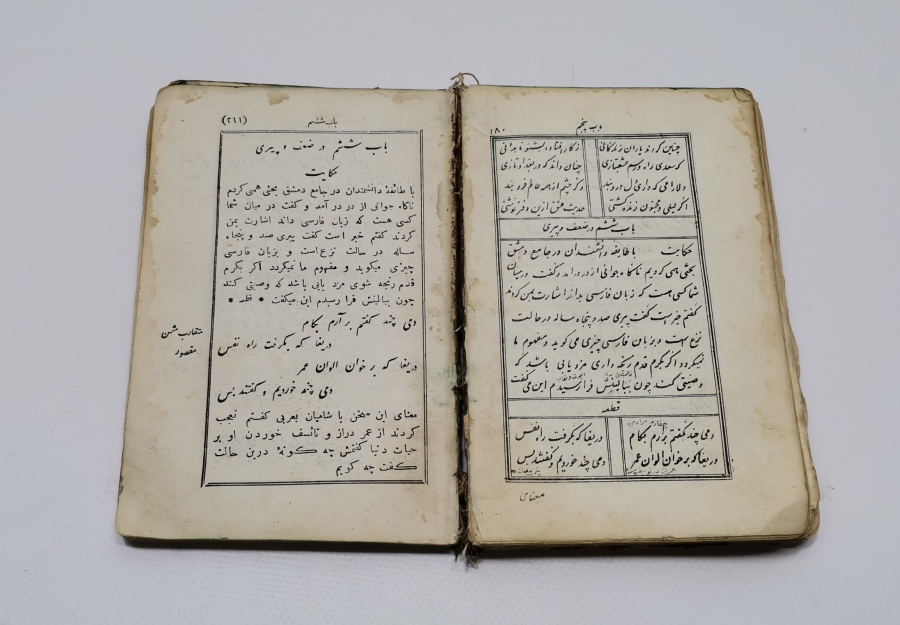 باب پنجم
۱۸۰
چنین کردند یاران زندگانی
زکار افتاده بشنو تا بدانی
که سعدی راه و رسم عشقبازی
چنان داند که در بغداد تازی
دلارامی که داری دل درو بند
وگر چشم از همه عالم فرو بند
اگر لیلی و مجنون زنده گشتی
حدیث عشق ازین دفتر نوشتی
باب ششم در ضعف و پیری
حکایت با طایفه دانشمندان در جامع دمشق
بحثی همی کردیم ناگاه جوانی از در درآمد و گفت درمیان
شما کسی هست که زبان فارسی بداند اشارت بمن کردند
گفتم خیر است گفت پیری صد و پنجاه ساله در حالت
نزع است و بزبان فارسی چیزی می گوید و مفهوم ما
نمیگردد اگر بکرم قدم رنجه داری مزد یابی باشد که
وصیتی کند چون ببالینش فرا رسیدم این می گفت
قطعه
دمی چند گفتم برآرم بکام
دریغا که بگرفت راه نفس
دریغا که بر خوان الوان عمر
دمی چند خوردیم و گفتند بس
معنای
باب ششم
(۲۱۱)
باب ششم در ضعف و پیری
حکایت
با طائفۀ دانشمندان در جامع دمشق بحثی همی کردیم
ناکاه جوانی از در در آمد و کفت در میان شما
کسی هست که زبان فارسی داند اشارت بمن
کردند کفتم خیر است کفت پیری صد و پنجاه
ساله در حالت نزع است و بزبان فارسی
چیزی میکوید و مفهوم ما نمیکردد اکر بکرم
قدم رنجه شوی مزد یابی باشد که وصیتی کند
چون ببالینش فرا رسیدم این میکفت * نظم *
دمی چند کفتم بر آرم بکام
دریغا که بگرفت راه نفس
دریغا که بر خوان الوان عمر
دمی چند خوردیم و کفتند بس
معنای این سخن با شامیان بعربی کفتم تعجب
کردند از عمر دراز و تأسف خوردن او بر
حیات دنیا کفتمش چه کونۀ درین حالت
کفت چه کویم
متقارب مثمن
مقصور